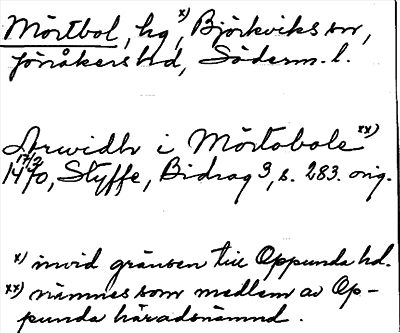 Mörtbol, hg x), Björkviks sn,
Jönåkers hd, Söderm. l.
Arwidh i Mörtabole xx)
17/3 1470, Styffe, Bidrag 3, s. 283. orig.
x) invid gränsen till Oppunda hd.
xx) nämnes som medlem av Op-
punda häradsnämnd.